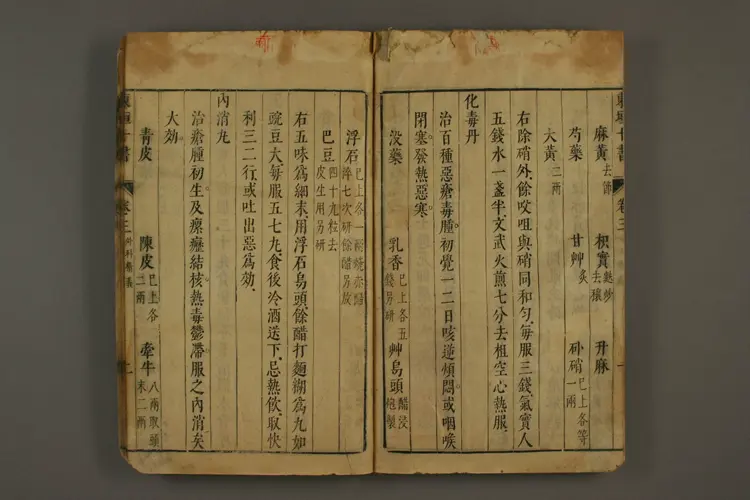 麻黃去節 枳實麩炒去穰 升麻
芍藥 甘艸炙 朴硝已上各等一兩
大黃二兩
右除硝外、餘㕮咀、與硝同和勻、每服三錢、氣實人
五錢、水一盞半、文武火煎七分、去柤、空心熱服、
化毒丹
治百種惡瘡毒腫、初覺一二日、咳逆煩悶、或咽喉
閉塞、發熱惡寒。
沒藥 乳香已上各五錢另研 艸烏頭醋浸炮製
浮石已上各一兩燒赤醋淬七次研餘醋另放
巴豆四十九粒去皮生用另研
右五味為細末、用浮石烏頭、餘醋打麵糊為丸如
豌豆大、每服五七丸、食後冷酒送下、忌熱飲、取快
利三二行、或吐出惡為効、
內消丸
治瘡腫初生、及瘰癧結核、熱毒鬱滯、服之內消矣
大効。
青皮 陳皮已上各二兩 牽牛八兩取頭末二兩
卷三